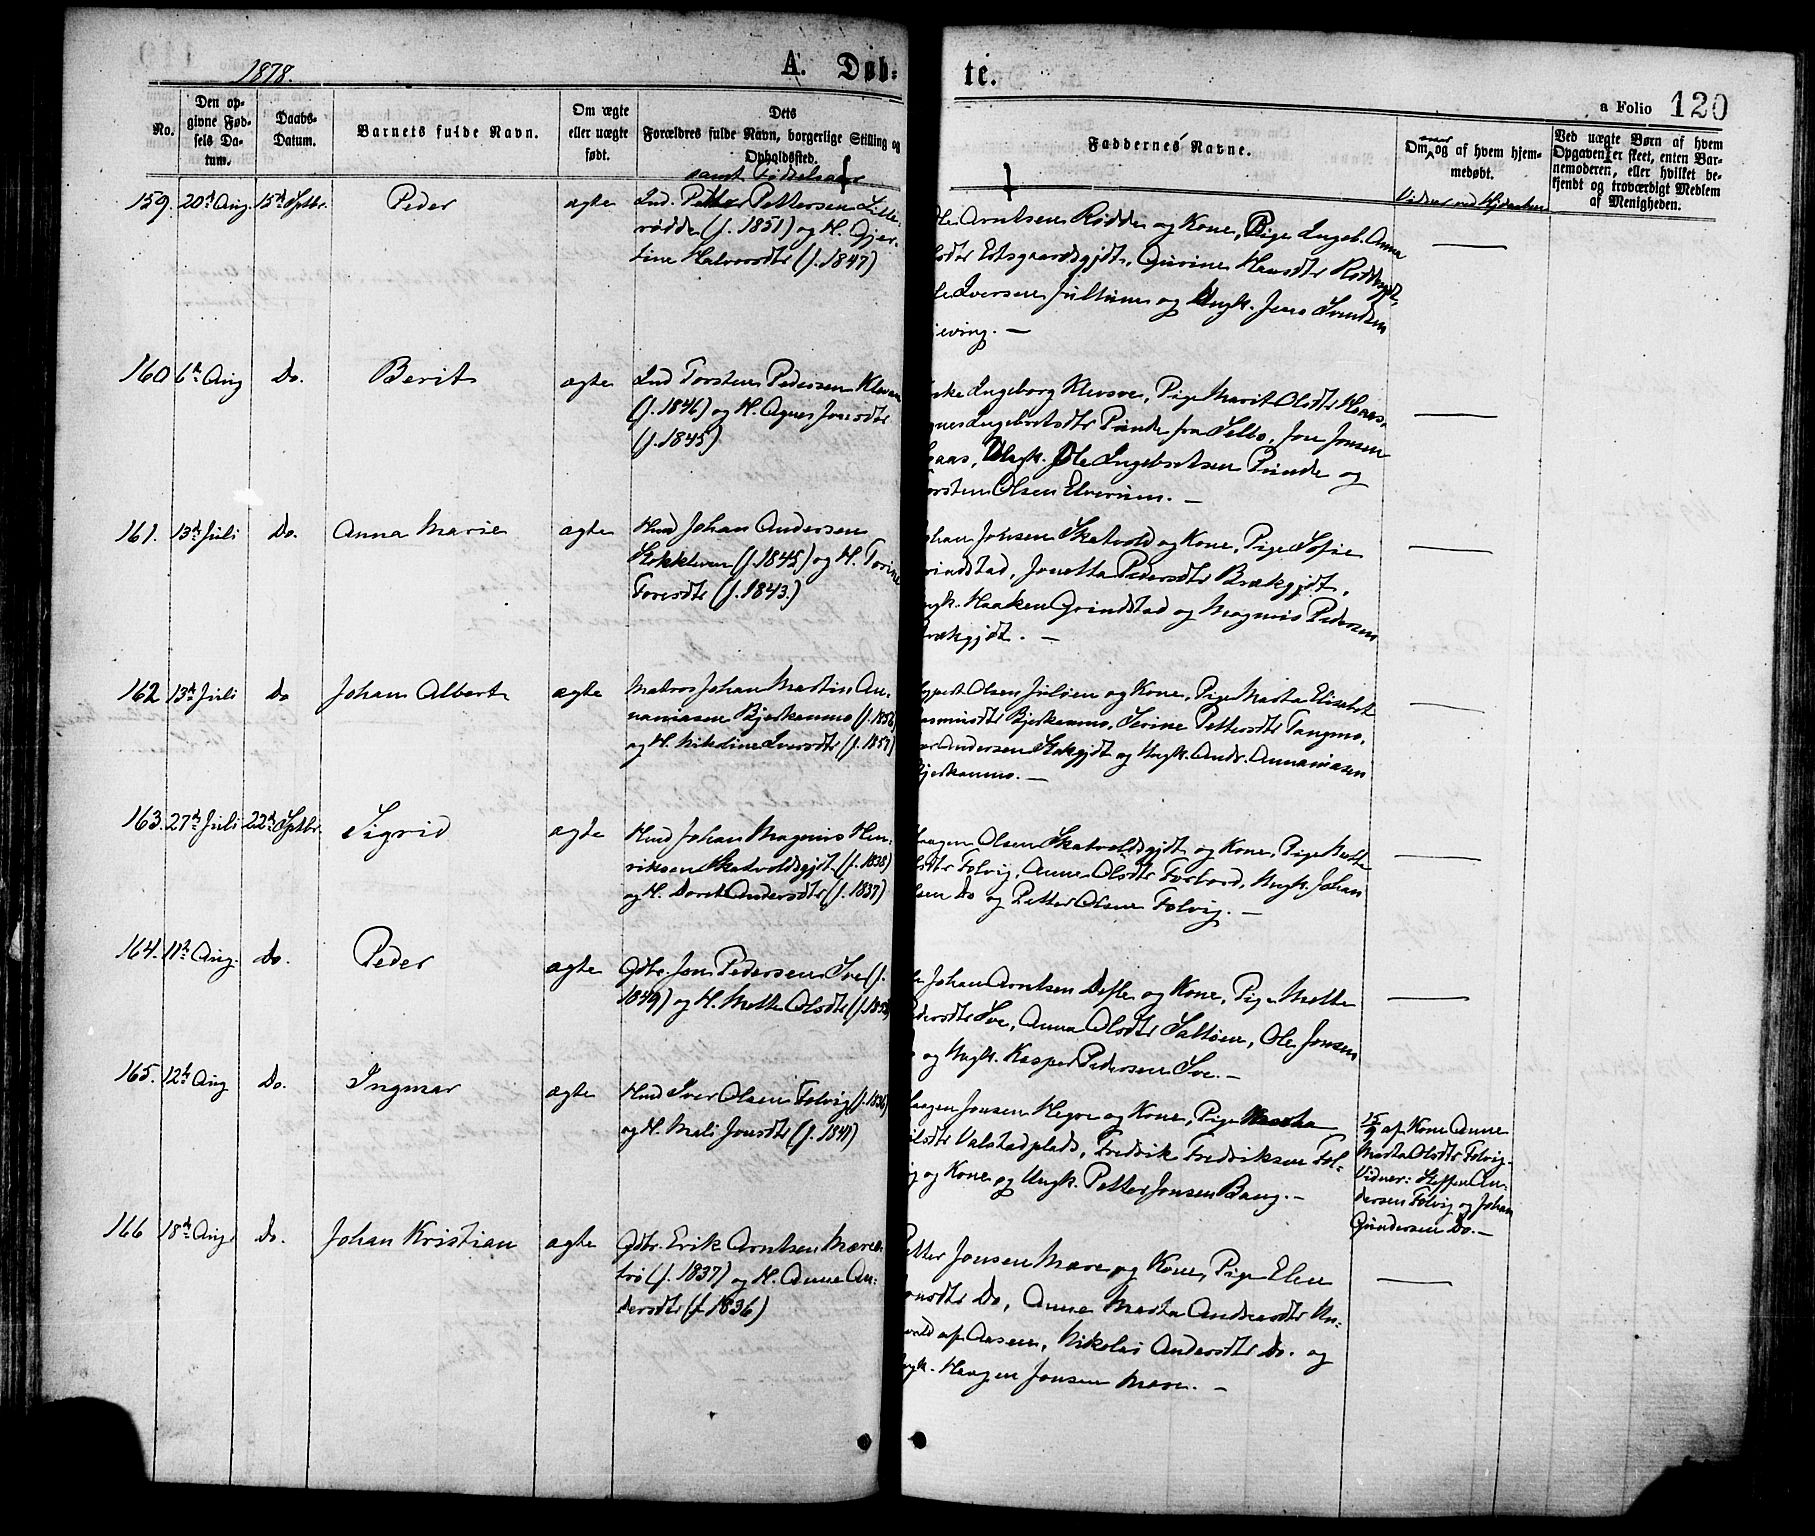 1878.
A. Døb-
te.
a Folio 120
No.
Den op-
givne Fød-
sels Da-
tum.
Daabs-
Datum.
Barnets fulde Navn.
Om ægte
eller uægte
født.
Dets
Forældres fulde Navn, borgerlige Stilling og
Opholdssted.
samt Fødselsaar
Faddernes Navne.
Om og af hvem hjem-
medøbt.
Ved uægte Børn af hvem
Opgaven er skeet, enten Bar-
nemoderen, eller hvilket be-
kjendt og troværdigt Medlem
af Menigheden.
159. 20de Aug. 15de Sptbr. Peder ægte
Ind. Petter Pettersen Lille-
rødde (f. 1851) og H. Gjer-
tine Halvorsdtr (f. 1847)
Arntsen Rødde og Kone, Pige Ingeb. Anna
Gurine Hansdtr
Iversen Jultuin og Ungk. Jens Svendsen
160 6te Aug Do. Berit ægte
Ind Torsten Pedersen
(f. 1846) og H. Agnes Jonsdtr
(f. 1845)
Ingeborg Klevsve, Pige Marit Olsdtr Haas.
Ingebrtsdtr Punde fra Selbo, Jon Jonsen
Ungk. Ole Ingebrtsen Punde og
Olsen Elverum. —
161. 13de Juli Do. Anna Marie ægte
Hmd Johan Andersen
(f. 1845) og H. Torine
Toresdtr (f. 1843.)
Johnsen Skatvold og Kone, Pige Sofie
Jonetta Pedersdtr Brækgjdt,
Haaken Grindstad og Magnus Pedersen
Brækgjdt. —
162 13de Juli Do Johan Albert ægte
Matros Johan Martin An-
naniasen Bjerkanmo (f. 1856)
og H. Nikoline Iversdtr (f. 1857)
Olsen Juløien og Kone, Pige Marta Elisabet
Rasmusdtr Bjerkanmo, Serine Pettersdtr Tangmo,
Andersen og Ungk. Andr. Annaniasen
Bjerkanmo. —
163. 27de Juli 22de Sptbr. Sigrid ægte
Hmd Johan Magnus Hen-
riksen Skatvoldsgjdt (f. 1838)
og H. Doret Andersdtr (f. 1837)
Haagen Olsen Skatvoldsgjdt og Kone, Pige Mette
Folvig, Anne Olsdtr Forbord, Ungk. Johan
Olsen Do og Petter Olsen Folvig. —
164. 11te Aug. Do. Peder ægte
Gdbr. Jon Pedersen Sve (f.
1849) og H. Mette Olsdtr
Johan Arntsen og Kone, Pige Mette
Pedersdtr Sve, Anna Olsdtr Saltøien, Ole Jonsen
og Ungk. Kasper Pedersen Sve. —
165. 12te Aug Do. Ingmar ægte
Hmd Iver Olsen Folvig (f. 1836)
og H. Mali Jonsdtr (f. 1841)
Haagen Jonsen Hegre og Kone, Pige Martha
Valstadplads, Fredrik Fredriksen Fol-
vig og Kone og Ungk. Petter Jonsen Bang. —
15/9 af Kone Anne
Marta Olsdtr Folvig.
Vidner: Steffen An-
dersen Folvig og Johan
Gundersen Do. —
166 18de Aug. Do. Johan Kristian ægte
Gdbr. Erik Arntsen Mære-
trø (f. 1837) og H. Anne An-
dersdtr (f. 1836)
Petter Jonsen Mære og Kone, Pige Elen
Jonsdtr Do, Anne Marta Andreasdtr
af Aasen, Nikolai Andersdtr Do. og
Ungk. Haagen Jonsen Mære. —